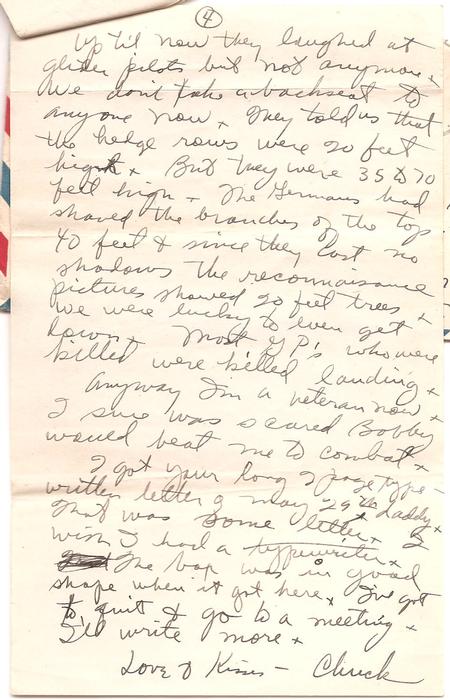 4
Up til now they laughed at
glider pilots but not anymore x
We don't take a backseat to
anyone now x They told us that
the hedge rows were 20 feet
high x But they were 35 to 70
feet high x The Germans had
shaved the branches of the top
40 feet & since they cast no
shadows the reconnaisance
pictures showed 20 feet trees x
We were lucky to even get
down x Most G.P.'s who were
killed were killed landing x
Anyway I'm a veteran now x
I sure was scared Bobby
would beat me to combat x
I got your long 2 page type-
written letter of May 29th Daddy x
That was some letter x I
wish I had a typewriter x
The box was in good
shape when it got here x I've got
to quit & go to a meeting x
I'll write more x
Love & Kisses - Chuck